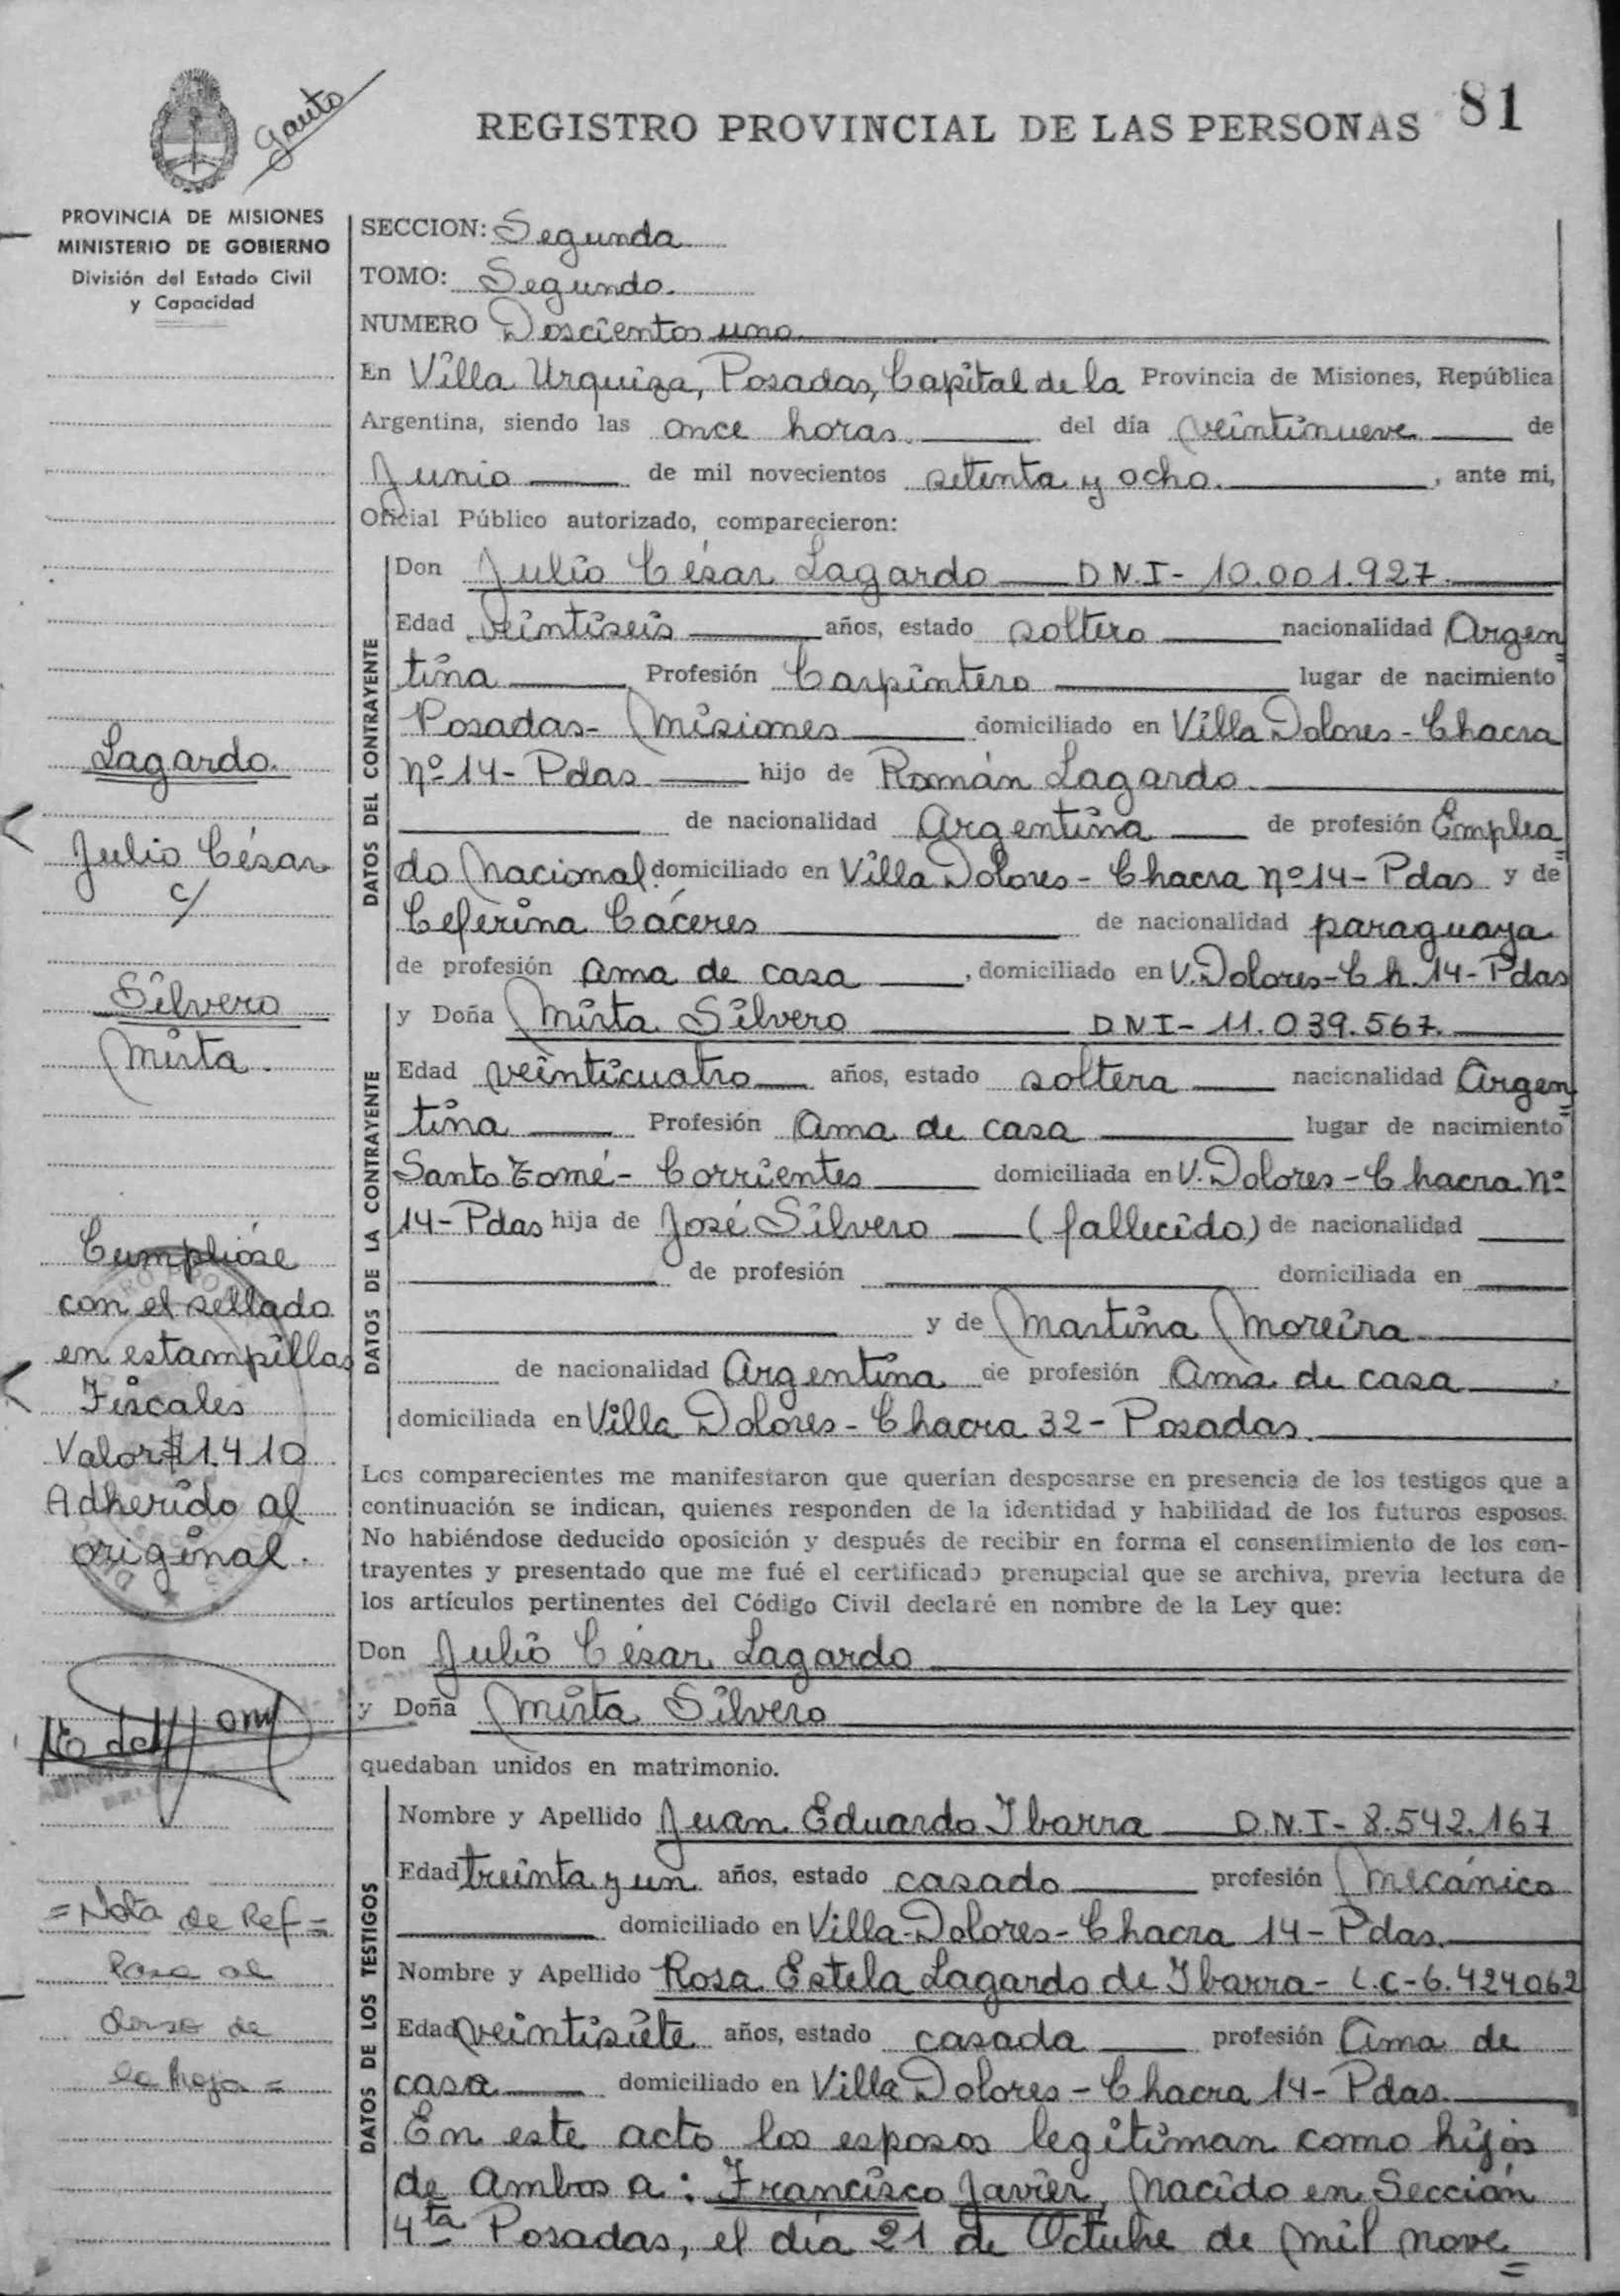 Gauto
REGISTRO PROVINCIAL DE LAS PERSONAS 81
PROVINCIA DE MISIONES
MINISTERIO DE GOBIERNO
División del Estado Civil
y Capacidad
SECCION: Segunda
TOMO: Segundo.
NUMERO Doscientos uno.
En Villa Urquiza, Posadas, Capital de la Provincia de Misiones, República
Argentina, siendo las once horas. del día veintinueve de
Junio de mil novecientos setenta y ocho. , ante mi,
Oficial Público autorizado, comparecieron:
DATOS DEL CONTRAYENTE
Don Julio César Lagardo D.N.I- 10.001.927.
Edad veintiseis años, estado soltero nacionalidad Argen
tina Profesión Carpintero lugar de nacimiento
Posadas- Misiones domiciliado en Villa Dolores - Chacra
Nº 14- Pdas hijo de Román Lagardo.
de nacionalidad Argentina de profesión Emplea
do Nacional. domiciliado en Villa Dolores - Chacra Nº 14- Pdas y de
Ceferina Cáceres de nacionalidad paraguaya
de profesión Ama de casa , domiciliado en V. Dolores-Ch. 14- Pdas
DATOS DE LA CONTRAYENTE
y Doña Mirta Silvero DNI- 11.039.567.
Edad veinticuatro años, estado soltera nacionalidad Argen
tina Profesión Ama de casa lugar de nacimiento
Santo Tomé- Corrientes domiciliada en V. Dolores - Chacra Nº
14- Pdas hija de José Silvero (fallecido) de nacionalidad
de profesión domiciliada en
y de Martina Moreira
de nacionalidad Argentina de profesión Ama de casa ,
domiciliada en Villa Dolores - Chacra 32 - Posadas.
Los comparecientes me manifestaron que querían desposarse en presencia de los testigos que a
continuación se indican, quienes responden de la identidad y habilidad de los futuros esposos.
No habiéndose deducido oposición y después de recibir en forma el consentimiento de los con-
trayentes y presentado que me fué el certificado prenupcial que se archiva, previa lectura de
los artículos pertinentes del Código Civil declaré en nombre de la Ley que:
Don Julio César Lagardo
y Doña Mirta Silvero
quedaban unidos en matrimonio.
DATOS DE LOS TESTIGOS
Nombre y Apellido Juan Eduardo Ibarra D.N.I- 8.542.167
Edad treinta y un años, estado casado profesión Mecánico
domiciliado en Villa-Dolores- Chacra 14- Pdas.
Nombre y Apellido Rosa Estela Lagardo de Ibarra- L.C-6.424062
Edad veintisiete años, estado casada profesión Ama de
casa domiciliado en Villa Dolores - Chacra 14- Pdas.
En este acto los esposos legitiman como hijos
de Ambos a: Francisco Javier, Nacido en Sección
4ta Posadas, el día 21 de Octubre de mil nove
Lagardo.
Julio César
c/
Silvero
Mirta.
Cumplióse
con el sellado
en estampillas
Fiscales
Valor $ 1.410
Adherido al
original.
=Nota de Ref=
Pasa al
dorso de
la hoja=